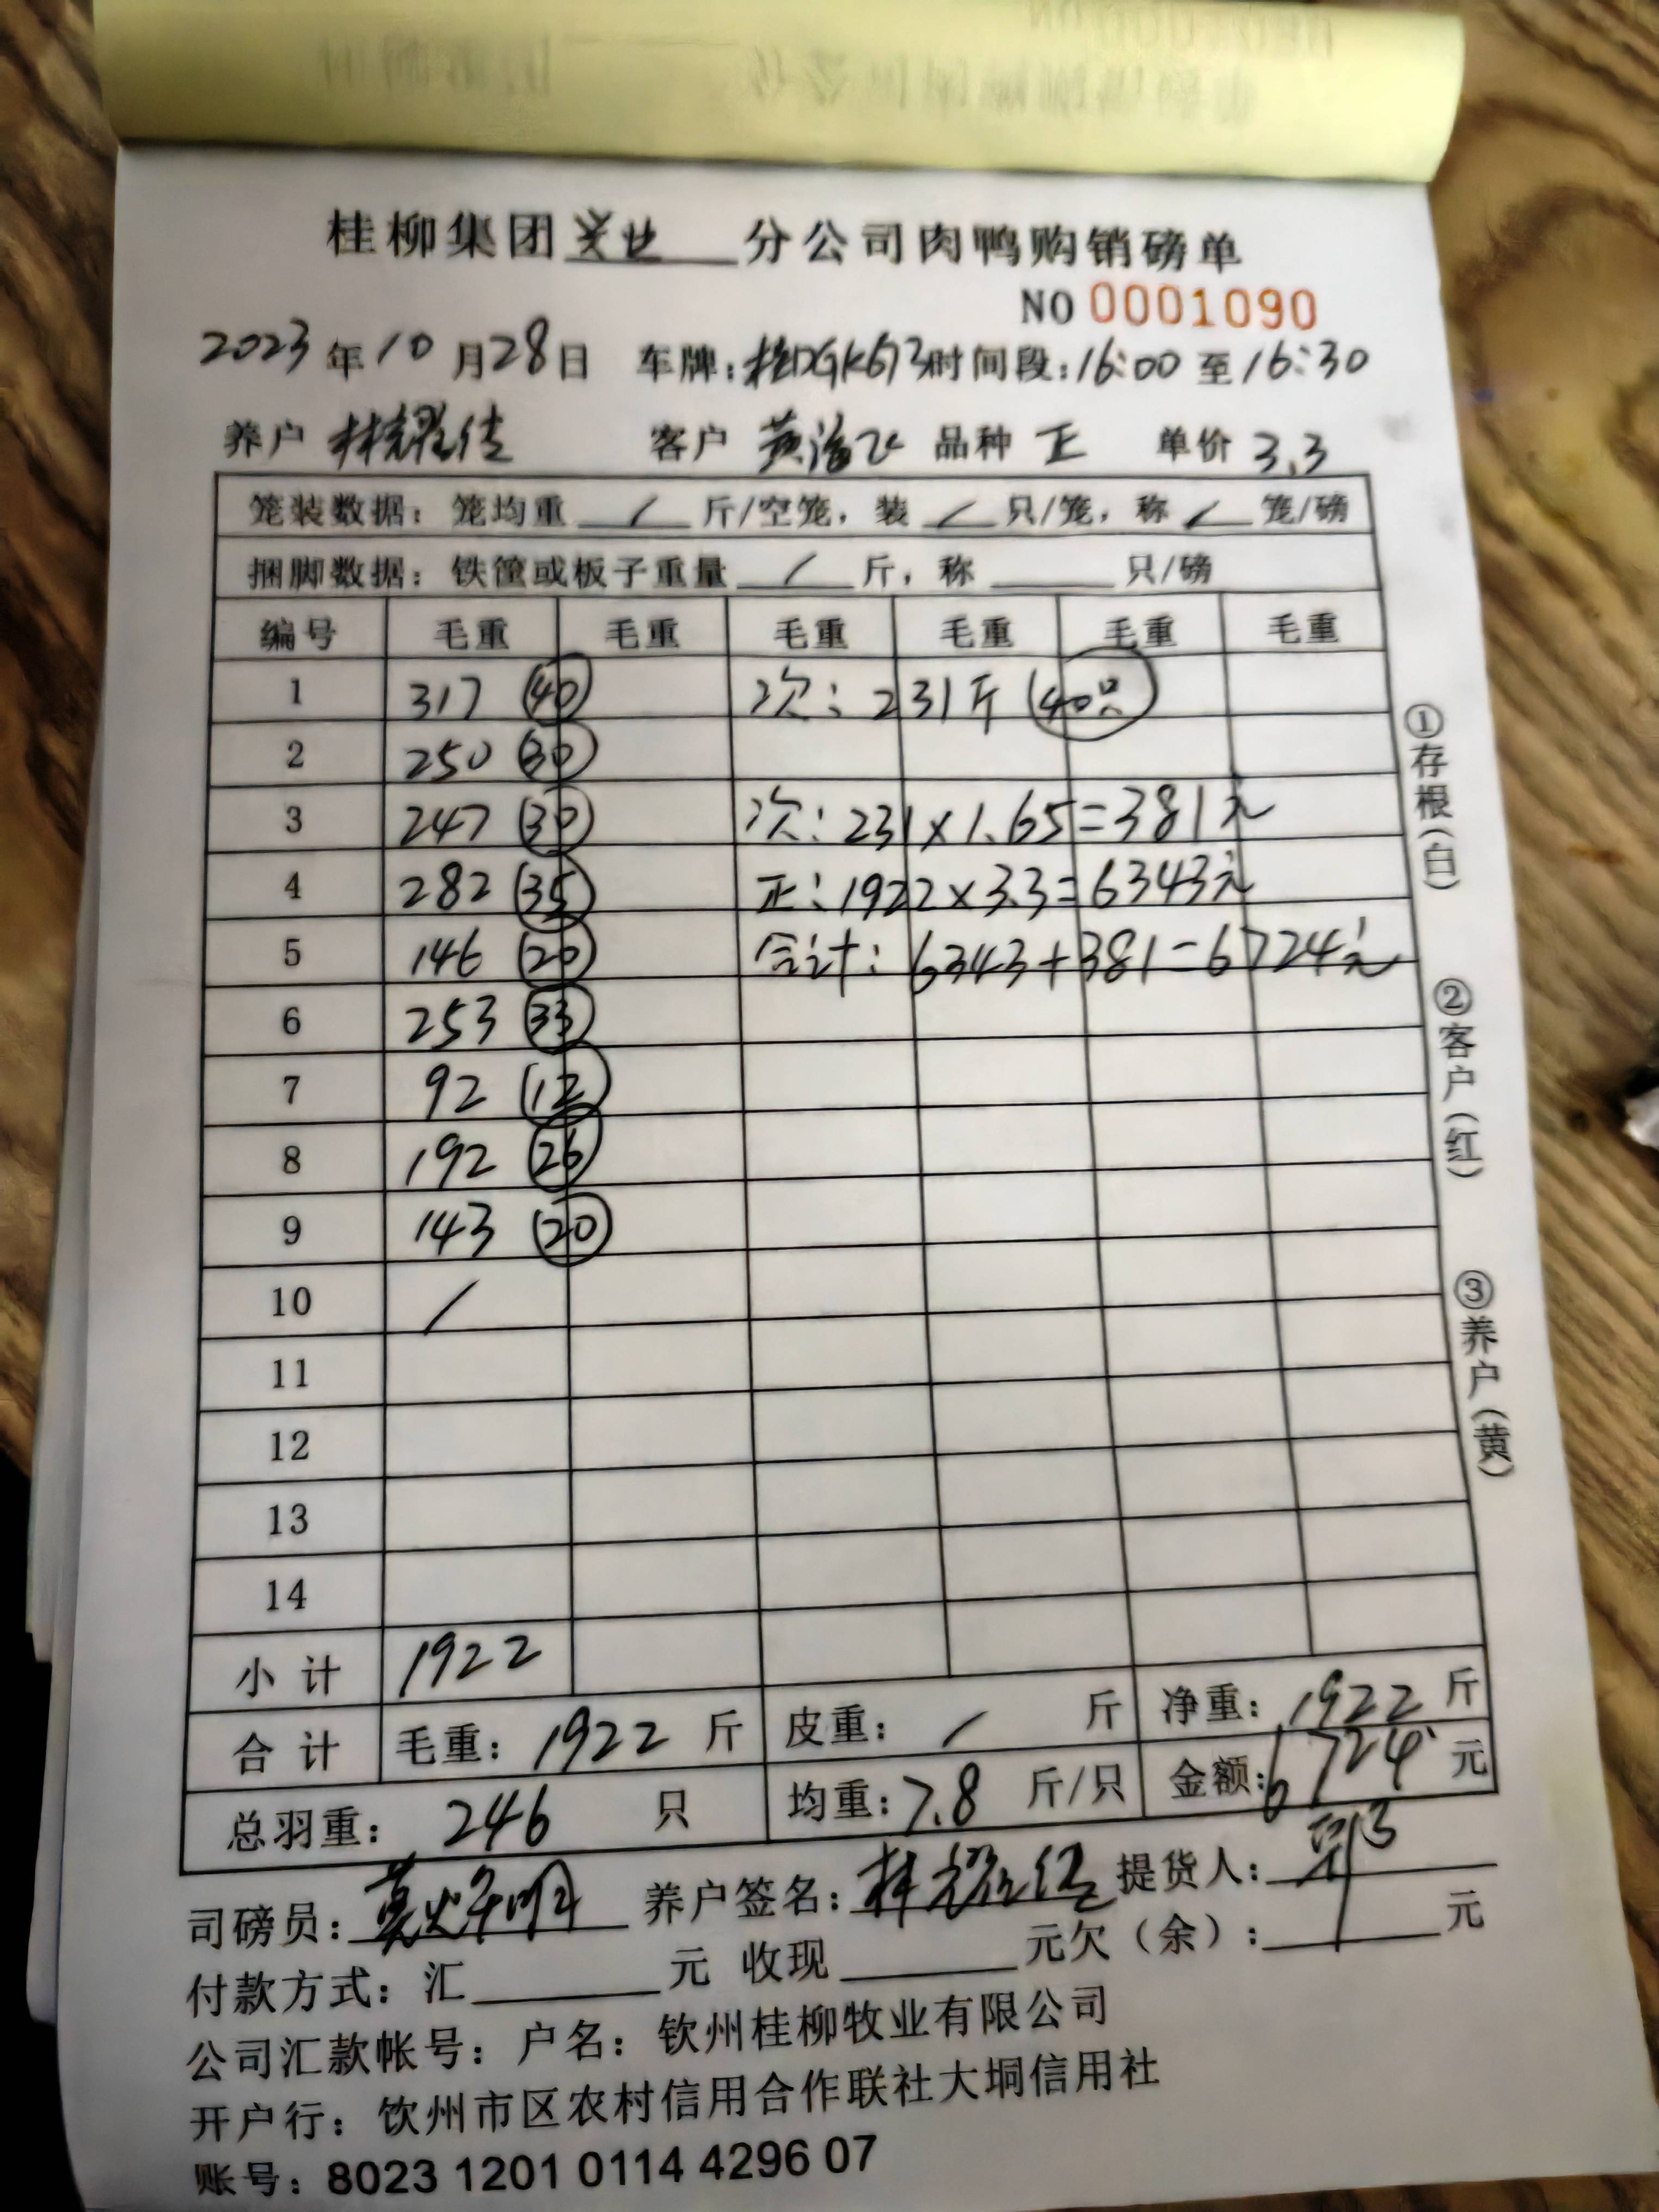 桂柳集团兴业分公司肉鸭购销磅单
NO 0001090
2023年10月28日 车牌:桂DGK673 时间段:16:00至16:30
养户 林耀佳 客户 黄海飞 品种 正 单价 3.3
笼装数据：笼均重 / 斤/空笼，装 / 只/笼，称 / 笼/磅
捆脚数据：铁筐或板子重量 / 斤，称 只/磅
编号 毛重 毛重 毛重 毛重 毛重 毛重
1 317 (40) 次：231斤 (40只)
2 250 (30)
3 247 (30) 次：231×1.65=381元
4 282 (35) 正：1922×3.3=6343元
5 146 (20) 合计：6343+381=6724元
6 253 (33)
7 92 (12)
8 192 (26)
9 143 (20)
10 /
11
12
13
14
小计 1922
合计 毛重：1922 斤 皮重： / 斤 净重：1922 斤
总羽重：246 只 均重：7.8 斤/只 金额：6724 元
司磅员： 养户签名：林耀佳 提货人：
付款方式：汇 元 收现 元欠（余）： 元
公司汇款帐号：户名：钦州桂柳牧业有限公司
开户行：饮州市区农村信用合作联社大垌信用社
账号：8023 1201 0114 4296 07
①存根(白)
②客户(红)
③养户(黄)